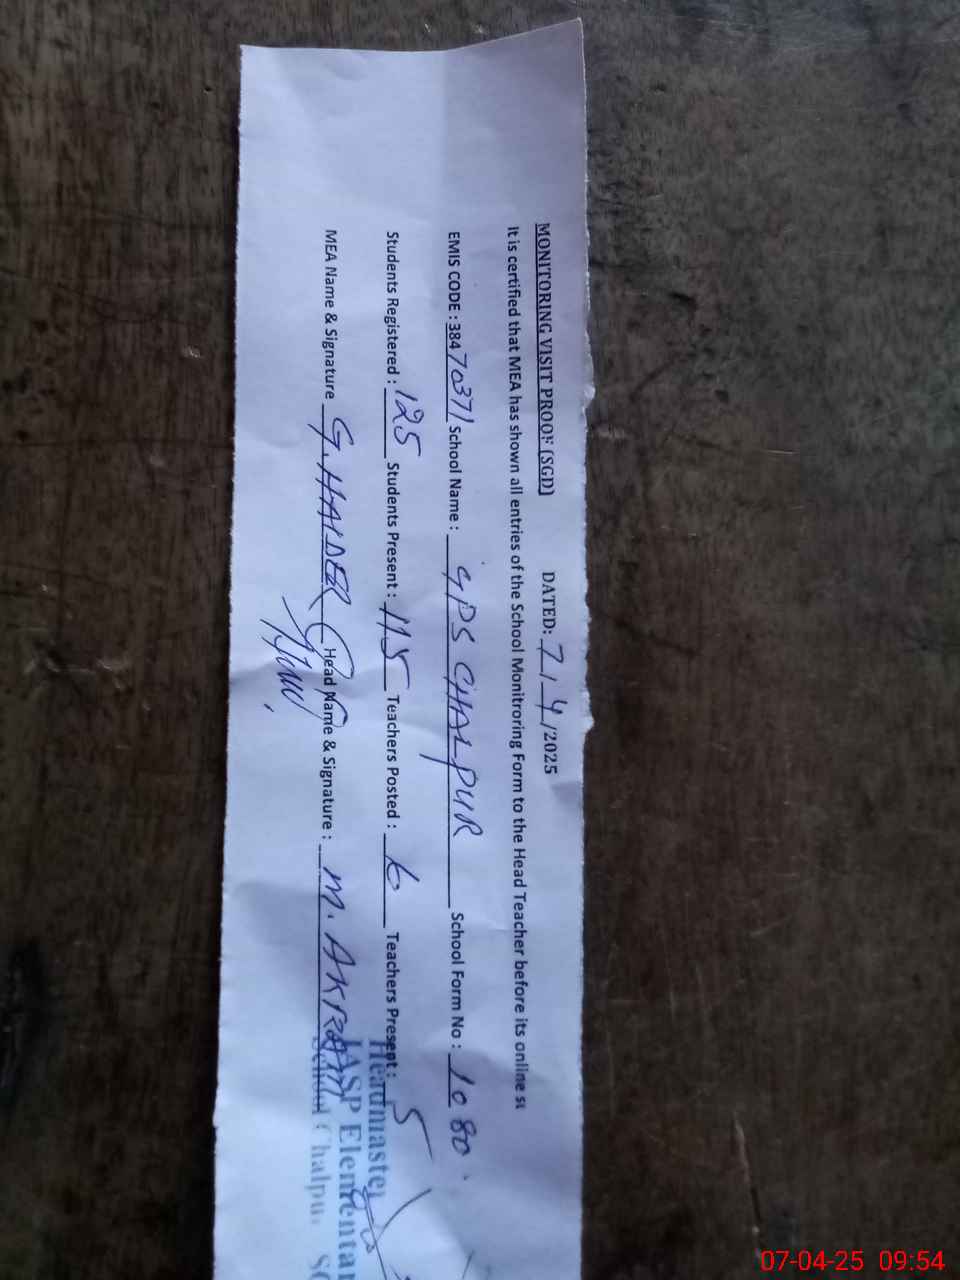 MONITORING VISIT PROOF (SGD) DATED: 7/4/2025
It is certified that MEA has shown all entries of the School Monitroring Form to the Head Teacher before its online
EMIS CODE : 38470371 School Name : GPS CHALPUR School Form No : 1080
Students Registered : 125 Students Present : 115 Teachers Posted : 6 Teachers Present : 5
MEA Name & Signature G. HAIDER Head Name & Signature : M. AKRAM
Headmaster
IASP
School Chalpu
07-04-25 09:54